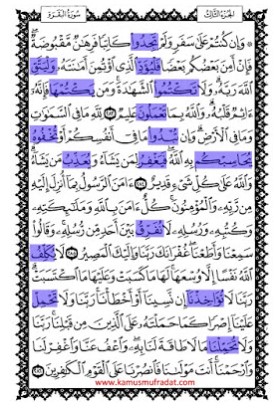 سُورَةُ البَقَرَةِ الجُزءُ الثَّالِثُ
۞ وَإِن كُنتُمْ عَلَىٰ سَفَرٍ وَلَمْ تَجِدُوا۟ كَاتِبًا فَرِهَـٰنٌ مَّقْبُوضَةٌ
فَإِنْ أَمِنَ بَعْضُكُم بَعْضًا فَلْيُؤَدِّ ٱلَّذِى ٱؤْتُمِنَ أَمَـٰنَتَهُۥ وَلْيَتَّقِ
ٱللَّهَ رَبَّهُۥ وَلَا تَكْتُمُوا۟ ٱلشَّهَـٰدَةَ وَمَن يَكْتُمْهَا فَإِنَّهُۥٓ
ءَاثِمٌ قَلْبُهُۥ وَٱللَّهُ بِمَا تَعْمَلُونَ عَلِيمٌ ٢٨٣ لِّلَّهِ مَا فِى ٱلسَّمَـٰوَٰتِ
وَمَا فِى ٱلْأَرْضِ وَإِن تُبْدُوا۟ مَا فِىٓ أَنفُسِكُمْ أَوْ تُخْفُوهُ
يُحَاسِبْكُم بِهِ ٱللَّهُ فَيَغْفِرُ لِمَن يَشَآءُ وَيُعَذِّبُ مَن يَشَآءُ
وَٱللَّهُ عَلَىٰ كُلِّ شَىْءٍ قَدِيرٌ ٢٨٤ ءَامَنَ ٱلرَّسُولُ بِمَآ أُنزِلَ إِلَيْهِ
مِن رَّبِّهِۦ وَٱلْمُؤْمِنُونَ كُلٌّ ءَامَنَ بِٱللَّهِ وَمَلَـٰٓئِكَتِهِۦ
وَكُتُبِهِۦ وَرُسُلِهِۦ لَا نُفَرِّقُ بَيْنَ أَحَدٍ مِّن رُّسُلِهِۦ وَقَالُوا۟
سَمِعْنَا وَأَطَعْنَا غُفْرَانَكَ رَبَّنَا وَإِلَيْكَ ٱلْمَصِيرُ ٢٨٥ لَا يُكَلِّفُ
ٱللَّهُ نَفْسًا إِلَّا وُسْعَهَا لَهَا مَا كَسَبَتْ وَعَلَيْهَا مَا ٱكْتَسَبَتْ
رَبَّنَا لَا تُؤَاخِذْنَآ إِن نَّسِينَآ أَوْ أَخْطَأْنَا رَبَّنَا وَلَا تَحْمِلْ
عَلَيْنَآ إِصْرًا كَمَا حَمَلْتَهُۥ عَلَى ٱلَّذِينَ مِن قَبْلِنَا رَبَّنَا
وَلَا تُحَمِّلْنَا مَا لَا طَاقَةَ لَنَا بِهِۦ وَٱعْفُ عَنَّا وَٱغْفِرْ لَنَا
وَٱرْحَمْنَآ أَنتَ مَوْلَىٰنَا فَٱنصُرْنَا عَلَى ٱلْقَوْمِ ٱلْكَـٰفِرِينَ ٢٨٦
www.kamusmufradat.com